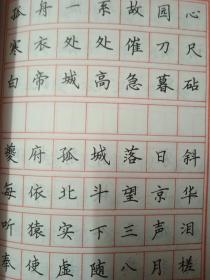 孤舟一系故园心
寒衣处处催刀尺
白帝城高急暮砧
夔府孤城落日斜
每依北斗望京华
听猿实下三声泪
奉使虚随八月槎